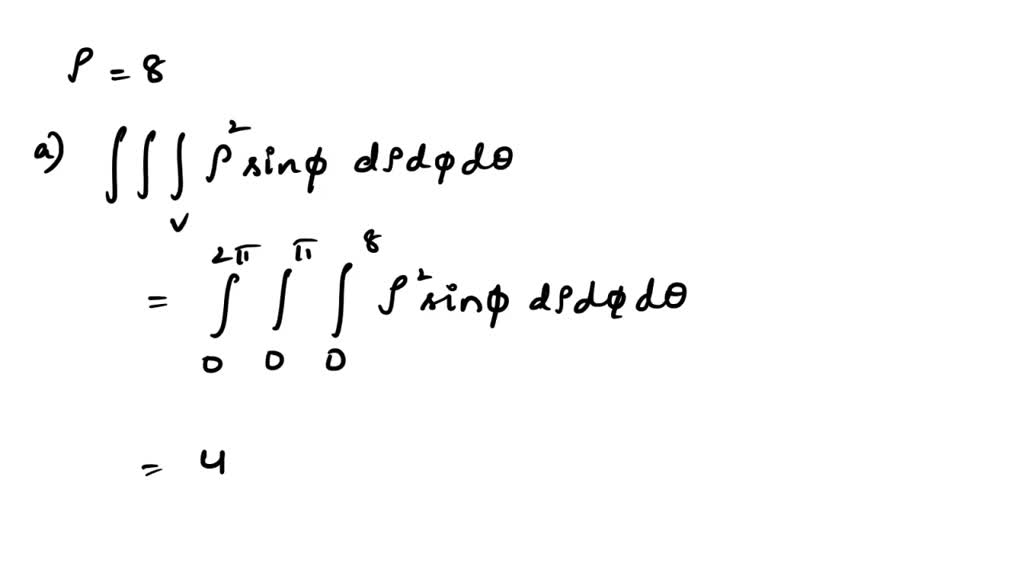 ρ = 8
a) ∭_V ρ² sinφ dρdφdθ
= ∫₀^{2π} ∫₀^{π} ∫₀^{8} ρ² sinφ dρdφdθ
= 4